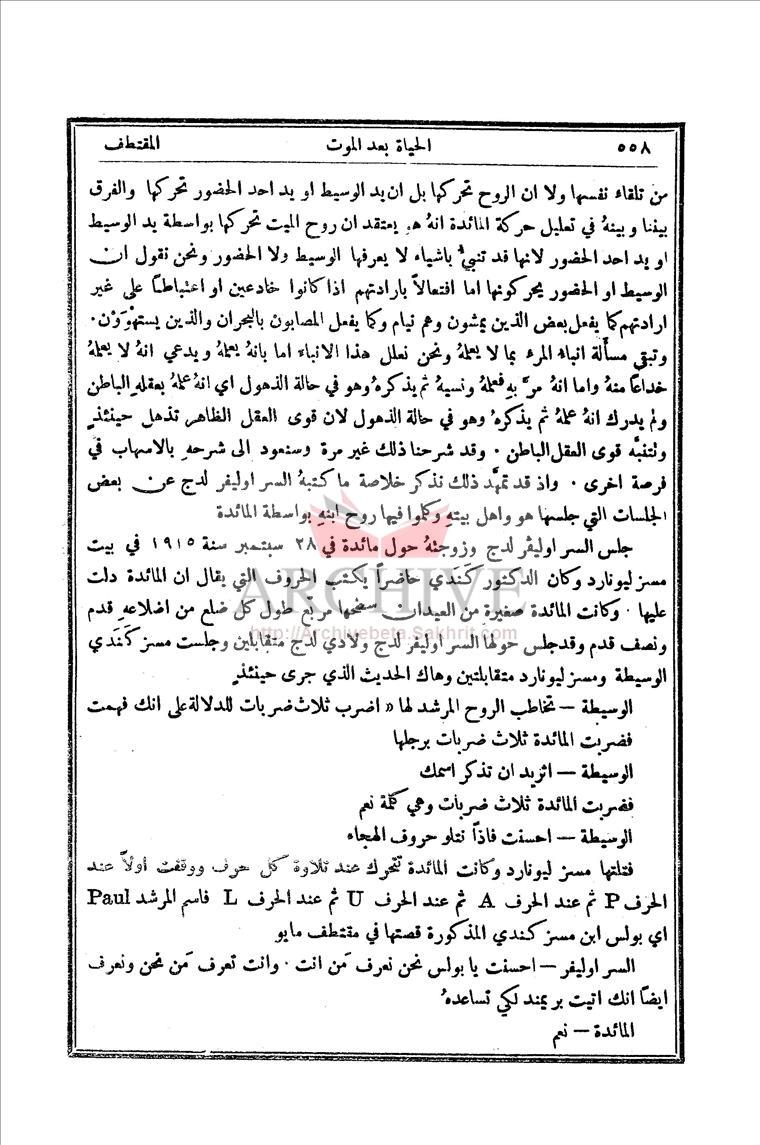 ٥٥٨ الحياة بعد الموت المقتطف
من تلقاء نفسها ولا ان الروح تحركها بل ان يد الوسيط او يد احد الحضور تحركها والفرق
بيننا وبينهُ في تعليل حركة المائدة انهُ هو يعتقد ان روح الميت تحركها بواسطة يد الوسيط
او يد احد الحضور لانها قد تنبئُ باشياء لا يعرفها الوسيط ولا الحضور ونحن نقول ان
الوسيط او الحضور يحركونها اما افتعالاً بارادتهم اذا كانوا خادعين او اعتباطاً على غير
ارادتهم كما يفعل بعض الذين يمشون وهم نيام وكما يفعل المصابون بالبحران والذين يستهوَوْن .
وتبقى مسألة انباء المرء بما لا يعلمهُ ونحن نعلل هذا الانباء اما بانهُ يعلمهُ ويدعي انهُ لا يعلمهُ
خداعاً منهُ واما انهُ مرَّ بهِ فعلمهُ ونسيهُ ثم يذكرهُ وهو في حالة الذهول اي انهُ علمهُ بعقلهِ الباطن
ولم يدرك انهُ علمهُ ثم يذكرهُ وهو في حالة الذهول لان قوى العقل الظاهر تذهل حينئذٍ
وتتنبَّه قوى العقل الباطن . وقد شرحنا ذلك غير مرة وسنعود الى شرحهِ بالاسهاب في
فرصة اخرى . واذ قد تمهَّد ذلك نذكر خلاصة ما كتبهُ السر اوليفر لدج عن بعض
الجلسات التي جلسها هو واهل بيتهِ وكلموا فيها روح ابنهِ بواسطة المائدة
جلس السر اوليڤر لدج وزوجتهُ حول مائدة في ٢٨ سبتمبر سنة ١٩١٥ في بيت
مسز ليونارد وكان الدكتور كَنَدي حاضراً يكتب الحروف التي يقال ان المائدة دلت
عليها . وكانت المائدة صغيرة من العيدان سطحها مربع طول كل ضلع من اضلاعهِ قدم
ونصف قدم وقد جلس حولها السر اوليفر لدج ولادي لدج متقابلين وجلست مسز كَنَدي
الوسيطة ومسز ليونارد متقابلتين وهاك الحديث الذي جرى حينئذٍ
الوسيطة — تخاطب الروح المرشد لها « اضرب ثلاث ضربات للدلالة على انك فهمت
فضربت المائدة ثلاث ضربات برجلها
الوسيطة — اتريد ان تذكر اسمك
فضربت المائدة ثلاث ضربات وهي كلمة نعم
الوسيطة — احسنت فاذاً نتلو حروف الهجاء
فتلتها مسز ليونارد وكانت المائدة تتحرك عند تلاوة كل حرف ووقفت اولاً عند
الحرف P ثم عند الحرف A ثم عند الحرف U ثم عند الحرف L فاسم المرشد Paul
اي بولس ابن مسز كندي المذكورة قصتها في مقتطف مايو
السر اوليفر — احسنت يا بولس نحن نعرف مَن انت . وانت تعرف مَن نحن ونعرف
ايضاً انك اتيت بريمند لكي تساعدهُ
المائدة — نعم
ARCHIVE
http://Archivebeta.Sakhrit.com